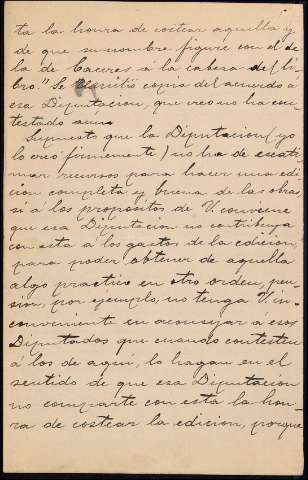 ta la honra de costear aquella y
de que su nombre figure con el de
la de Caceres a la cabeza del li-
bro." Se remitió copia del acuerdo á
esa Diputacion, que creo no ha con-
testado aún.
Supuesto que la Diputacion (yo
lo creo firmemente) no ha de escati-
mar recursos para hacer una edi-
cion completa y buena de las obras,
si á los propósitos de V. conviene
que esa Diputacion no contribuya
con esta á los gastos de la edicion,
para poder obtener de aquella
algo practico en otro orden, pen-
sion, por ejemplo, no tenga V. in-
conveniente en aconsejar á esos
Diputados que cuando contesten
á los de aquí, lo hagan en el
sentido de que esa Diputacion
no comparte con esta la hon-
ra de costear la edicion, porque